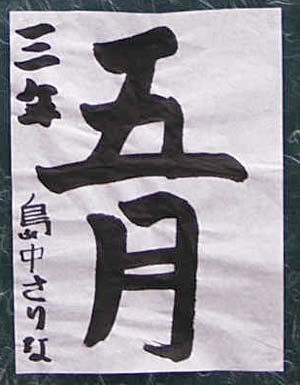 五月
三年
島中さりな